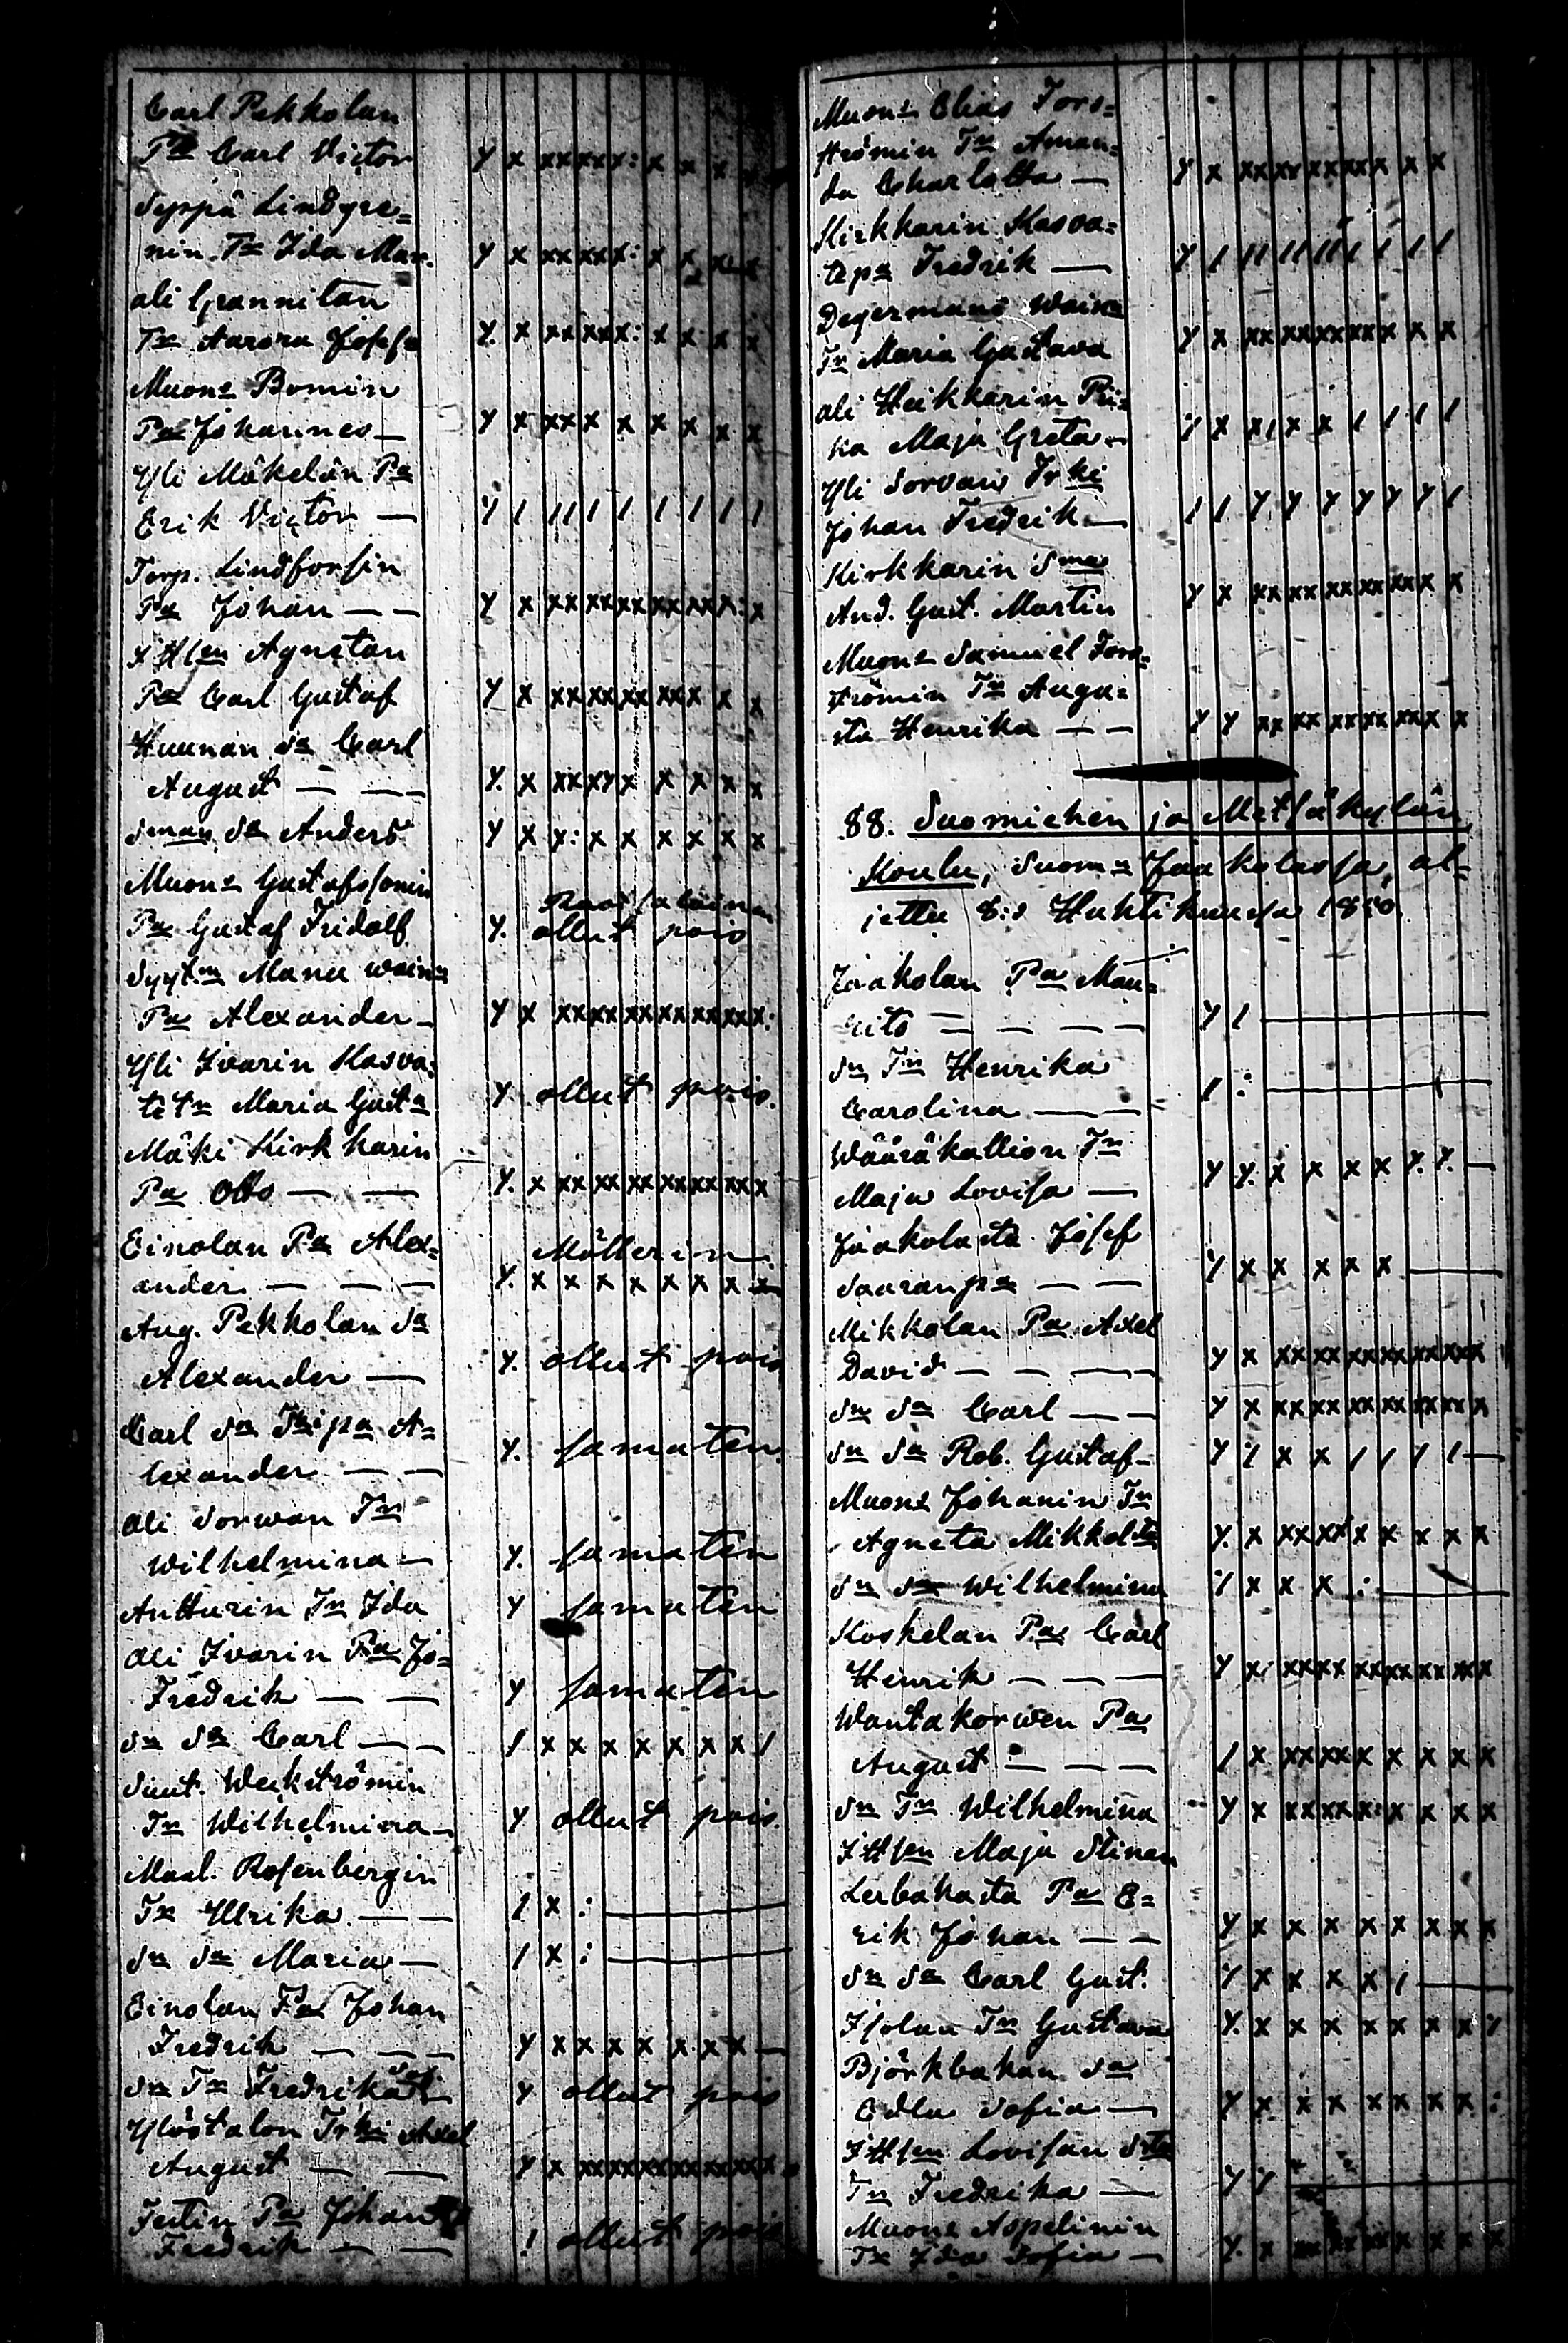 Carl Pekkolan
Pa Carl Victor y x xx xx x: x x x x
Seppä Lindgre=
nin Tr Ida Mar. y x xx xx x: x x x x
ali Grannilan
Tr Aurora Josefa y. x xx xx x: x x x x
Muons Bomin
Pa Johannes — y x xx x x x x x x
Yli Mäkelän Pa
Erik Victor — y / // / / / / / /
Torp. Lindforsin
Pa Johan — — y x xx xx xx xx xx x: x
Itsen Agnetan
Pa Carl Gustaf y x xx xx xx xx x x x
Huunan Sa Carl
August — — y. x xx xy x x x x x
Sman Sa Anders y x x: x x x x x x
Muons Gustafssonin
Pa Gustaf Fridolf y. ollut pois
Manu wain
Pa Alexander — y x xx xx xx xx xx xx x:
Yli Ivarin Kasva=
te tr Maria Gusta y ollut pois.
Mäki Kirkkarin
Pa Otto — — y. x xx xx xx xx xx xx x
Einolan Pa Alex= Möllerin
ander — — — y. x x x x x x x x
Aug. Pekkolan Sa
Alexander — y. ollut pois
Carl Sa Pa A=
lexander — — y. samaten
Ali Sorwan Tr
Wilhelmina — y. samaten
Antturin Tr Ida y samaten
Ali Ivarin Pa Jo=
Fredrik — — y samaten
Sn Sa Carl — — / x x x x x x x /
Suut. Weckströmin
Tr Wilhelmina — y ollut pois.
Maal. Rosenbergin
Tr Ulrika — — / x : —
Sn Sa Maria — / x : —
Einolan Pa Johan
Fredrik — — — y x x x x x x x —
Sn Tr Fredrika y ollut pois
Ylöstalon Trki Axel
August — — y x xx xx xx xx xx xx x
Testin Pa Johan
Fredrik — — ! ollut pois
Muons Elias Fors=
strömin Tr Aman=
da Charlotta — y x xx xx xx xx x x x
Kirkkarin Kasva=
te pa Fredrik — y / // // // / / / /
Degermans wain
Tr Maria Gustava y x xx xx xx xx x x x
ali Heikkarin Pii=
ka Maja Greta — / x x/ x x / / / /
Yli Sorvan Trki
Johan Fredrik — / / y y y y y y /
Kirkkarin Sma
And. Gust. Martin y x xx xx xx xx xx x x
Muons Samuel Fors=
strömin Tr Augu=
sta Henrika — — y y xx xx xx xx xx x x
88. Suomiehen ja Metsäkylän
Koulu, Suoms Jaakolassa, al=
jettu 8:s Huhtikuussa 1880
Jaakolan Pa Mau=
rits — — — — y / —
Sn Tr Henrika
Carolina — — / : —
Wääräkallion Tr
Maja Lovisa — y y. x x x x y. y. —
Jaakolasta Josef
Saaranpa — — y x x x x x —
Mikkolan Pa Axel
David — — — y x xx xx xx xx xx xx x
Sn Sa Carl — — y x xx xx xx xx xx xx x
Sn Sa Rob. Gustaf — y / x x / / / / —
Muons Johanin Tr
Agneta Mikkolta y. x xx xx x x x x x
Sn Sa Wilhelmina / x x x : —
Koskelan Pa Carl
Henrik — — — y x xx xx xx xx xx xx
Wantakorwen Pa
August — — — / x xx xx x x x x x
Sn Tr Wilhelmina y x xx xx x: x x x x
Itsen Maja Stinan
Lerbakasta Pa E=
rik Johan — — y x x x x x x x x
Sn Sa Carl Gust. y x x x x / —
Isolan Tr Gustava y. x x x x x x x y
Björkbakan Sa
Edla Sofia — y x x x x x x x :
Itsen Lovisan Sta
Tr Fredrika — y y —
Muons Aspelinin
Tr Ida Sofia — y. x